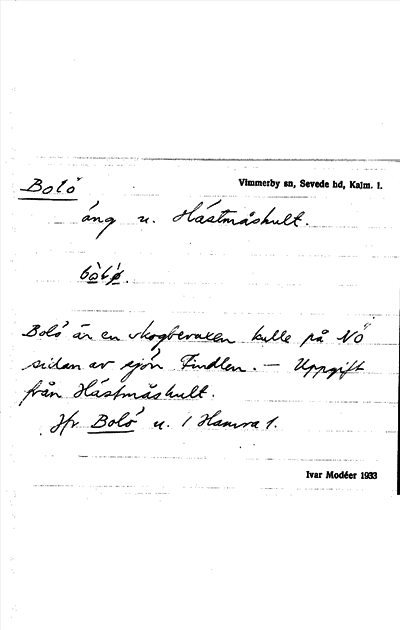 Bolö
Vimmerby sn, Sevede hd, Kalm. l.
äng u. Hästmåshult.
Bolö är en skogbevuxen kulle på NÖ
sidan av sjön Findlen. — Uppgift
från Hästmåshult.
Jfr Bolö u. / Hamra 1.
Ivar Modéer 1933